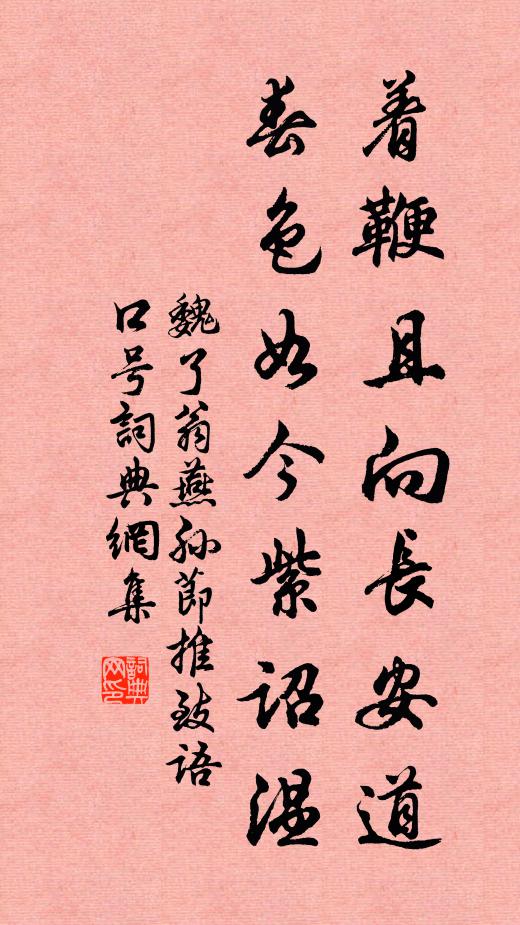 着鞭且向長安道
春色如今紫詔溫
魏了翁燕孙節推致語
口号詞典網集
詞典
网印